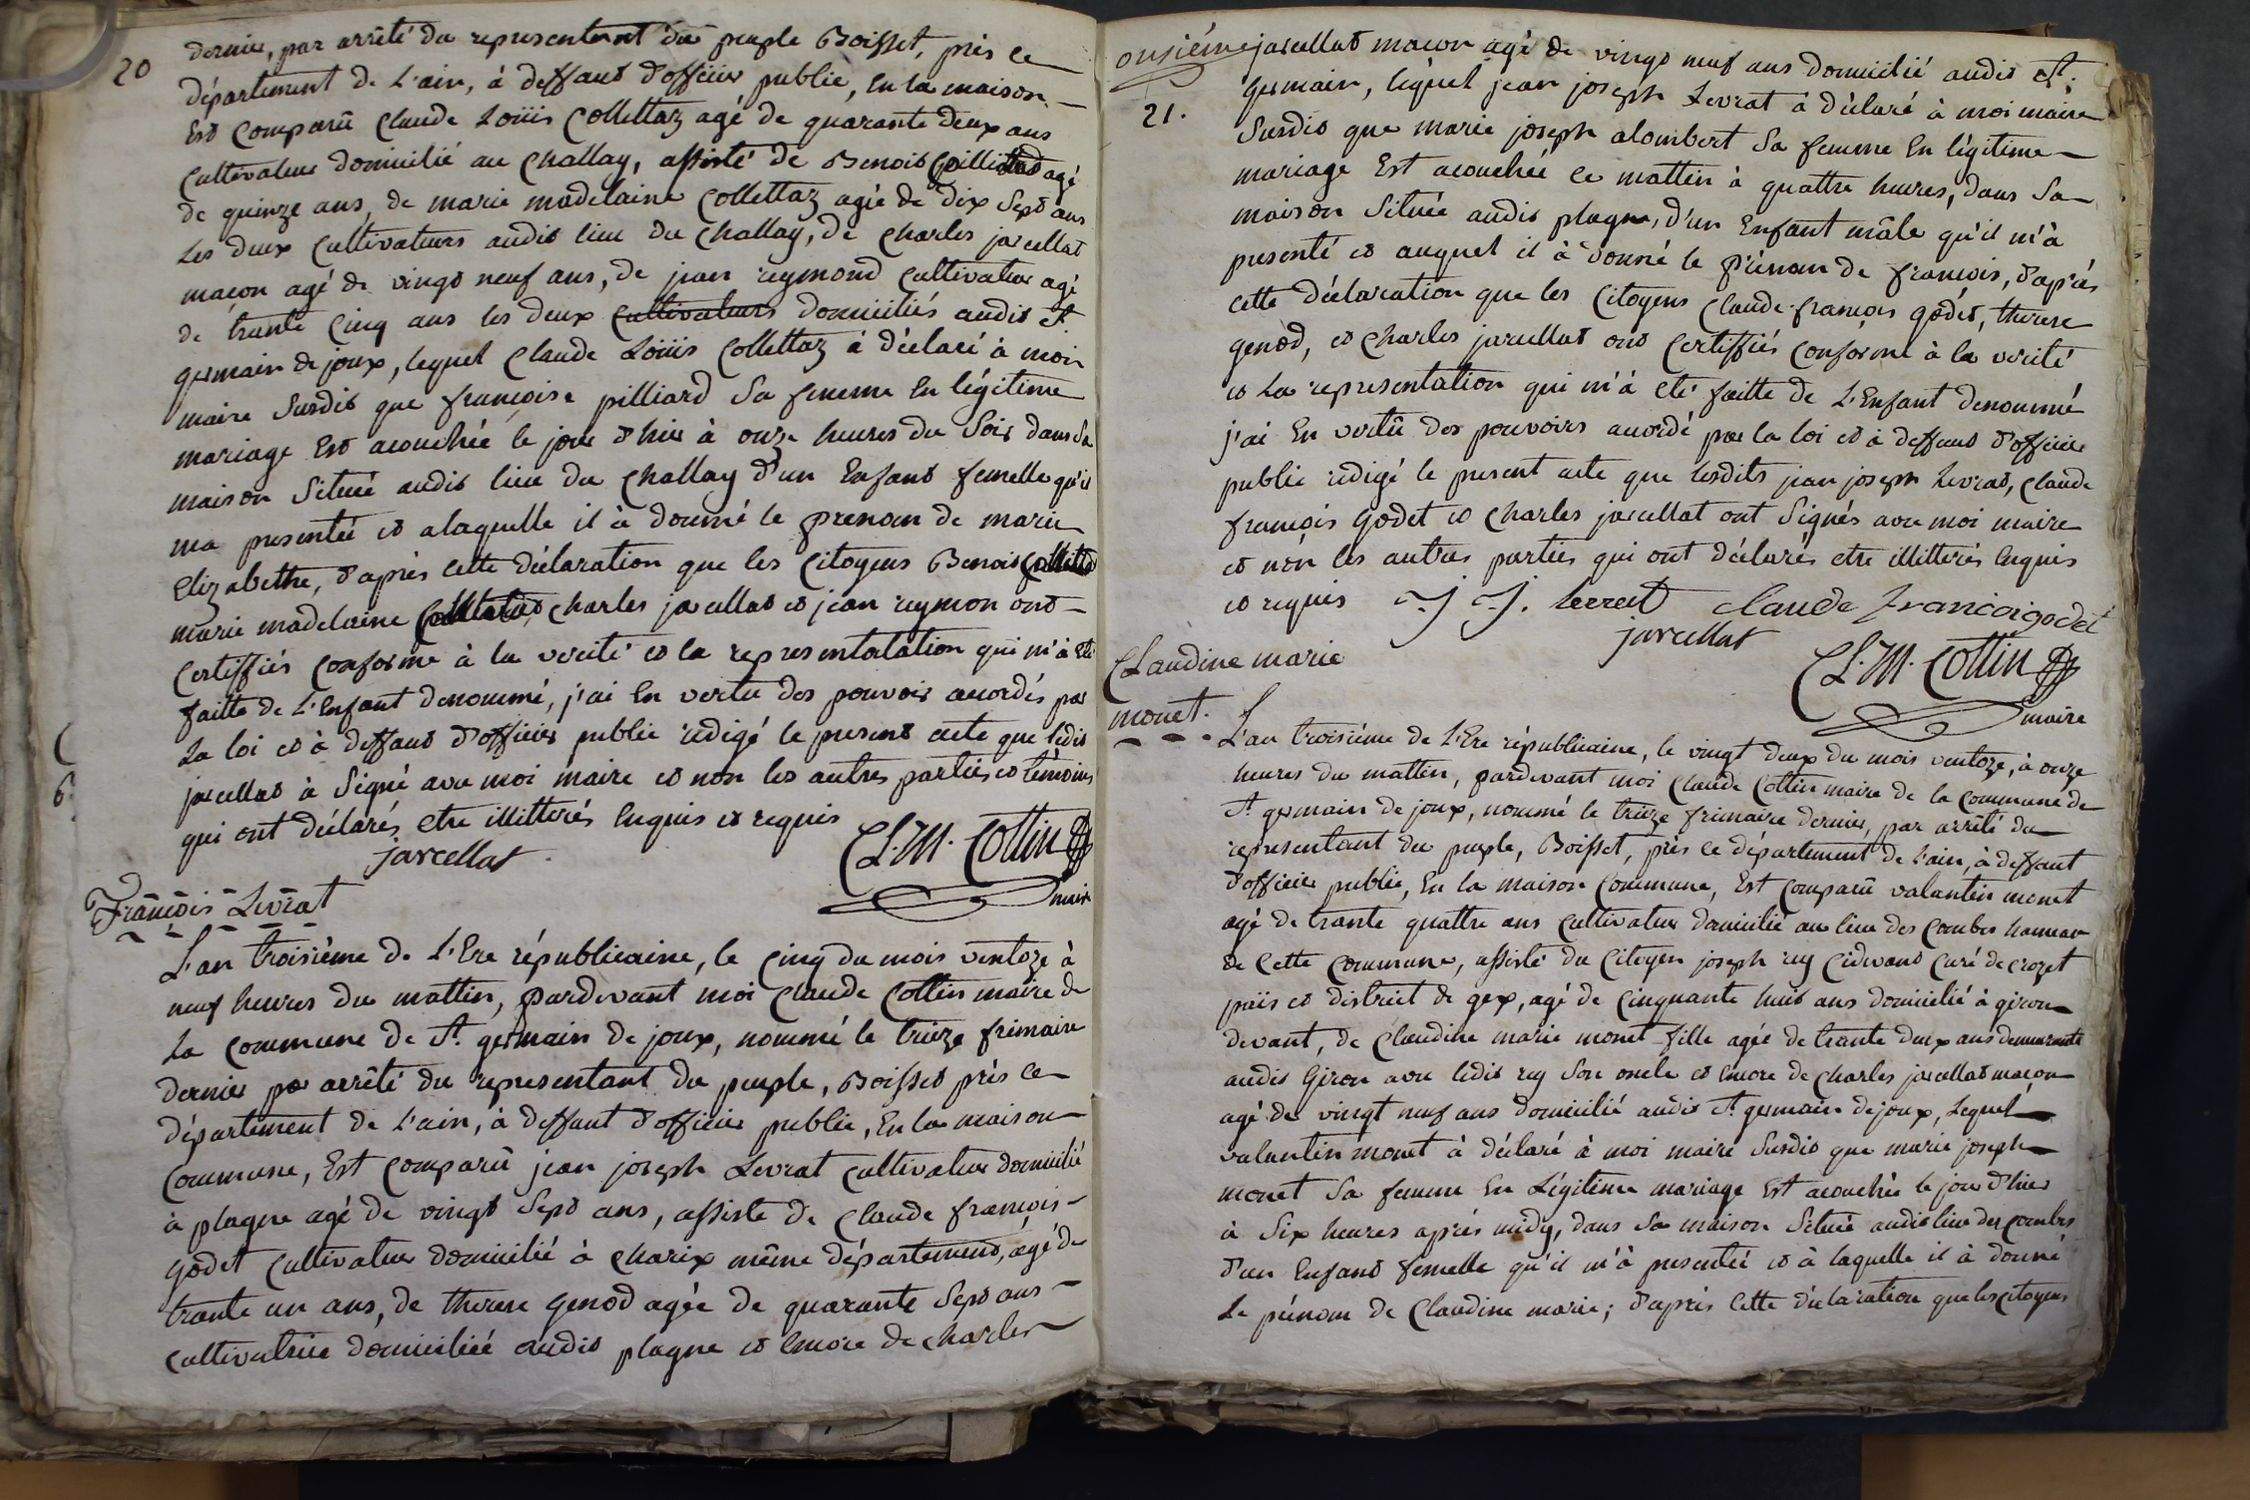 20
dernier, par arrêté du representant du peuple Boisset, près ce
département de L'ain, à deffaut d'officier publié, En la maison
Est Comparû Claude Loüis Collettaz agé de quarante deux ans
Cultivateur domicilié au Challay, assisté de Benoit agé
de quinze ans, de marie madelaine Collettaz agée de dix Sept ans
Les deux Cultivateurs audit lieu du Challay, de Charles jarcellat
maçon agé de vingt neuf ans, de jean reymond Cultivateur agé
de trante Cinq ans les deux Cultivateurs domiciliés audit St
germain de joux, lequel Claude Loüis Collettaz à déclaré à moi
maire Susdit que françoise pilliard Sa femme En légitime
mariage Est acouchée le jour d'hier à onze heures du Soir dans Sa
maison Située audit lieu du Challay d'un Enfant femelle qu'il
ma presentée et alaquelle il à donné le prenom de marie
Elizabethe, d'après cette déclaration que les Citoyens Benoit
marie madelaine Charles jarcellat et jean reymon ont
Certiffiés Conforme à la verité et la representatation qui m'à Eté
faitte de L'Enfant denommé, j'ai En vertu des pouvoir acordés par
La loi et à deffaut d'officier public rédigé le present acte que ledit
jarcellat à Signé avec moi maire et non les autres parties et témoins
qui ont déclarés etre illitterés Enquis et requis
jarcellat
CL. M. Collin
maire
François Levrat
L'an troisième de L'Ere républicaine, le Cinq du mois ventoze à
neuf heures du mattin, pardevant moi Claude Collin maire de
La Commune de St. germain de joux, nommé le trieze frimaire
dernier par arrêté du representant du peuple, Boisset près ce
département de L'ain, à deffaut d'officier public, En la maison
Commune, Est Comparû jean joseph Levrat Cultivateur domicilié
à plagne agé de vingt Sept ans, assisté de Claude françois
godet Cultivateur domicilié à Charix même département, agé de
trante un ans, de therese genod agée de quarante Sept ans
Cultivatrice domiciliée audit plagne et Encore de Charles
onsiéme
21.
jarcellat macon agé de vingt neuf ans domicilié audit St.
germain, lequel jean joseph Levrat à déclaré à moi maire
Susdit que marie joseph alombert Sa femme En légitime
mariage Est acouchée ce mattin à quattre heures, dans Sa
maison Située audit plagne, d'un Enfant mâle qu'il m'à
presenté et auquel il à donné le prénom de françois, d'après
cette déclaration que les Citoyens Claude-françois godet, therese
genod, et Charles jarcellat ont Certiffiés Conforme à la verité
et La representation qui m'à eté faitte de L'Enfant denommé
j'ai En vertû des pouvoirs acordé par la loi et à deffaut d'officier
public rédigé le present acte que lesdits jean joseph Levrat, Claude
françois godet et Charles jarcellat ont Signés avec moi maire
et non les autres parties qui ont déclarés etre illitterés Enquis
et requis J J. levrat Claude francoi godet
jarcellat
CL. M. Collin
maire
Claudine marie
monet.
L'an troisiéme de L'Ere républicaine, le vingt deux du mois ventoze, à onze
heures du mattin, pardevant moi Claude Collin maire de la Commune de
St. germain de joux, nommé le trieze frimaire dernier, par arrêté du
representant du peuple, Boisset, près ce département de L'ain, à deffaut
d'officier public, En la maison Commune, Est Comparû valantin monet
agé de trante quattre ans Cultivateur domicilié au lieu des Combes hameau
de Cette Commune, assisté du Citoyen joseph rey Cidevant Curé de crozet
païs et district de gex, agé de Cinquante huit ans domicilié à giron
devant, de Claudine marie monet fille agée de trante deux ans demeurante
audit Giron avec ledit rey Son oncle et Encore de Charles jarcellat macon
agé de vingt neuf ans domicilié audit St. germain de joux, Lequel
valantin monet à déclaré à moi maire Susdit que marie joseph
monet Sa femme En Légitime mariage Est acouchée le jour d'hier
à Six heures après midy, dans Sa maison Située audit lieu des Combes
d'un Enfant femelle qu'il m'à presentée et à laquelle il à donné
Le prénom de Claudine marie; d'après Cette déclaration que les citoyens